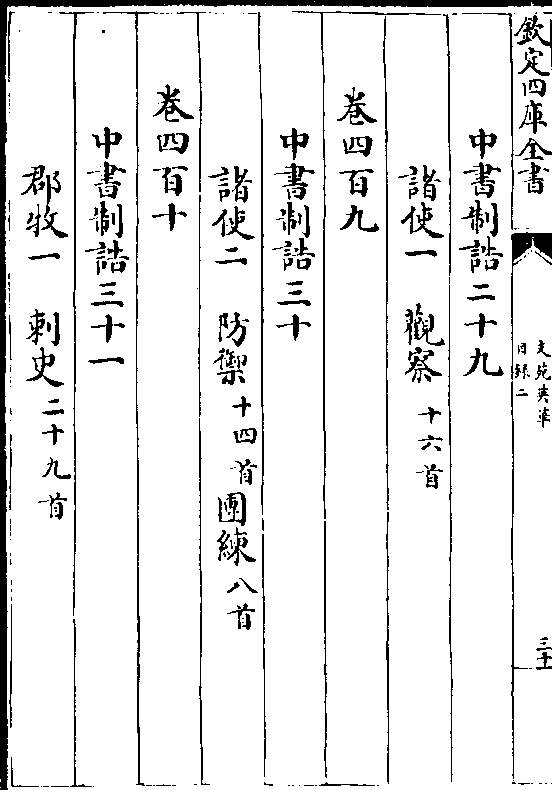 欽定四庫全書
文苑英華
目録二
三十
中書制誥二十九
諸使一　觀察十六首
卷四百九
中書制誥三十
諸使二　防禦十四首團練八首
卷四百十
中書制誥三十一
郡牧一　刺史二十九首